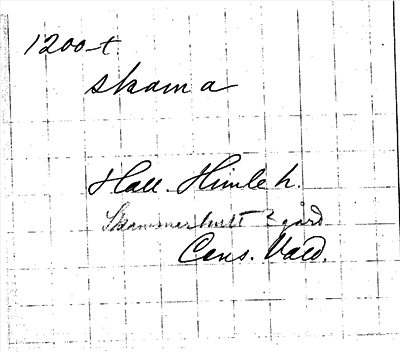 1200-t.
skama
Hall. Himle h.
Skammarhult 2 gård
Cens. Vald.